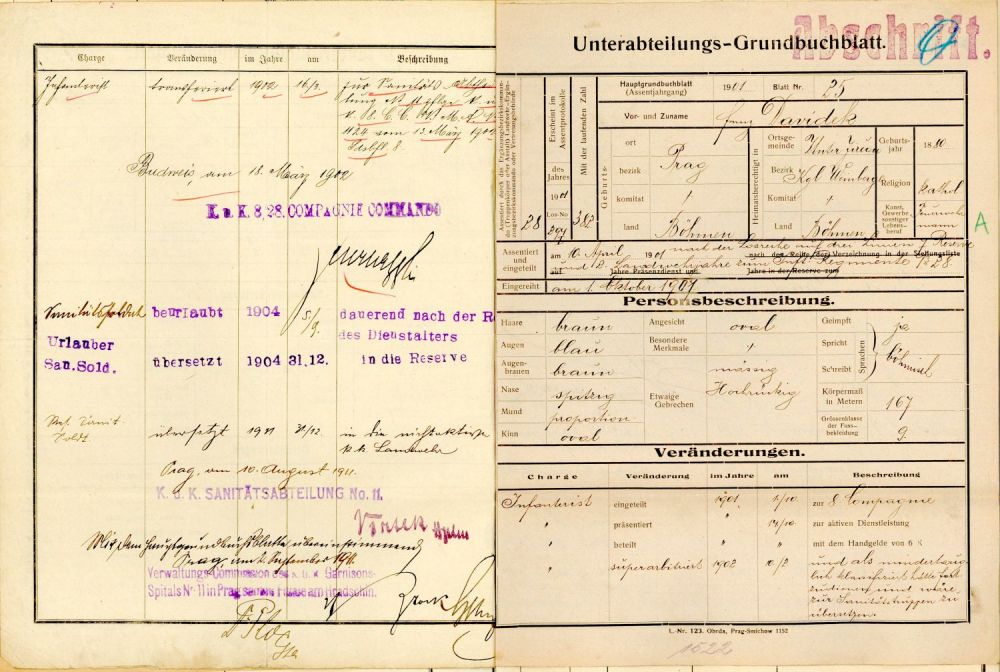 Charge Veränderung im Jahre am Beschreibung
Infanterist transferiert 1902 16/3 zur Sanitäts
vom 13. März 1902
Budweis, am 18. März 1902
K. u. K. 8/28. COMPAGNIE COMMANDO
beurlaubt 1904 5/9. dauernd nach der R
des Dienstalters
Urlauber
San. Sold. übersetzt 1904 31.12. in die Reserve
übersetzt 1911 31/12 in die nichtaktive
k.k. Landwehr
Prag, am 10. August 1911.
K. u. K. SANITÄTSABTEILUNG No. 11.
Mit dem Hauptgrundbuchsblatte übereinstimmend
Prag am 2. September 1911.
Verwaltungs-Commission des k. u. k. Garnisons-
Spitals Nr. 11 in Prag
Abschrift.
Unterabteilungs-Grundbuchblatt.
Hauptgrundbuchblatt
(Assentjahrgang) 1901 Blatt Nr. 25
Vor- und Zuname Franz Davidek
Assentiert durch das Ergänzungsbezirkskommando
Erscheint im Assentprotokolle
des Jahres 1901
Los-No
Mit der laufenden Zahl 382
28
Geburts-
ort Prag
bezirk
komitat
land Böhmen
Heimatsberechtigt in
Ortsgemeinde Unter
Bezirk Kgl Weinberge
Komitat
Land Böhmen
Geburtsjahr 1880
Religion kathol
Kunst, Gewerbe, sonstiger Lebensberuf
mann
A
Assentiert und eingeteilt am 10. April 1901 nach der Losreihe auf drei Linien 7 Reserve
nach der Reihe der Verzeichnung in der Stellungsliste
und 2 Landwehrjahre zum Inft Regimente No 28
Jahre Präsenzdienst und Jahre in der Reserve zum
Eingereiht am 1. Oktober 1901
Personsbeschreibung.
Haare braun
Augen blau
Augenbrauen braun
Nase spitzig
Mund proportion
Kinn oval
Angesicht oval
Besondere Merkmale
Etwaige Gebrechen mässig
Hochrückig
Geimpft ja
Spricht
Schreibt
Sprachen böhmisch
Körpermaß in Metern 167
Grössenklasse der Fussbekleidung 9.
Veränderungen.
Charge Veränderung im Jahre am Beschreibung
Infanterist eingeteilt 1901 1/10 zur 8 Compagnie
" präsentiert " 14/10 zur aktiven Dienstleistung
" beteilt " " mit dem Handgelde von 6 K
" superarbitriert 1902 10/2 und als mindertaug-
lich klassifiziert hätte fort
zudienen und wäre
zur Sanitätstruppen zu
übersetzen.
L.-Nr. 123. Ohrda, Prag-Smichow 1152
1522